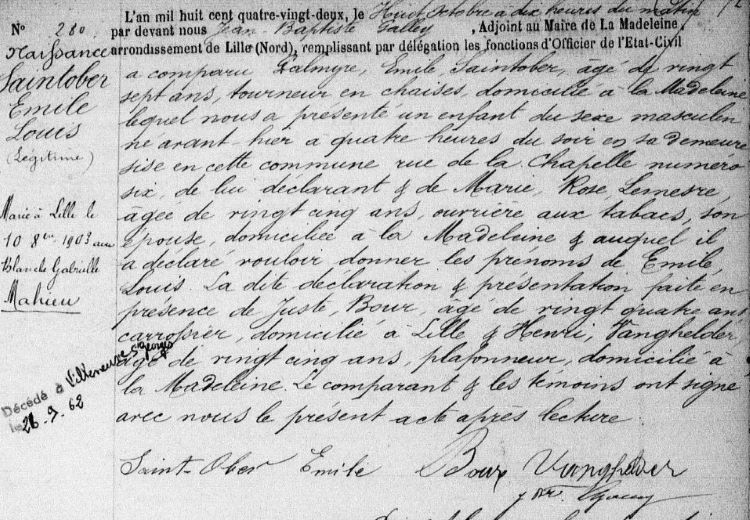 L'an mil huit cent quatre-vingt-deux, le Huit Octobre à dix heures du matin
par devant nous Jean-Baptiste , Adjoint au Maire de La Madeleine,
arrondissement de Lille (Nord), remplissant par délégation les fonctions d'Officier de l'Etat-Civil
a comparu Galmyre, Emile, Saintober, âgé de vingt
sept ans, tourneur en chaises, domicilié à la Madeleine
lequel nous a présenté un enfant du sexe masculin
né avant-hier à quatre heures du soir en sa demeure
sise en cette commune rue de la Chapelle numéro
six, de lui déclarant & de Marie, Rose Lemesre
âgée de vingt cinq ans, ouvrière aux tabacs, son
épouse, domiciliée à la Madeleine & auquel il
a déclaré vouloir donner les prénoms de Emile,
Louis. La dite déclaration & présentation faite en
présence de Juste, Bour, âgé de vingt quatre ans
carrossier, domicilié à Lille & Henri, Vanghelder
âgé de vingt cinq ans, plafonneur, domicilié à
la Madeleine. Le comparant & les témoins ont signé
avec nous le présent acte après lecture.
Saint-Ober Emile Vanghelder
No 280
Naissance
Saintober
Emile
Louis
(Légitime)
Marié à Lille le
10 8bre 1903 avec
Blanche Gabrielle
Mahieu
Décédé à Villeneuve St Georges
le 28.9.62